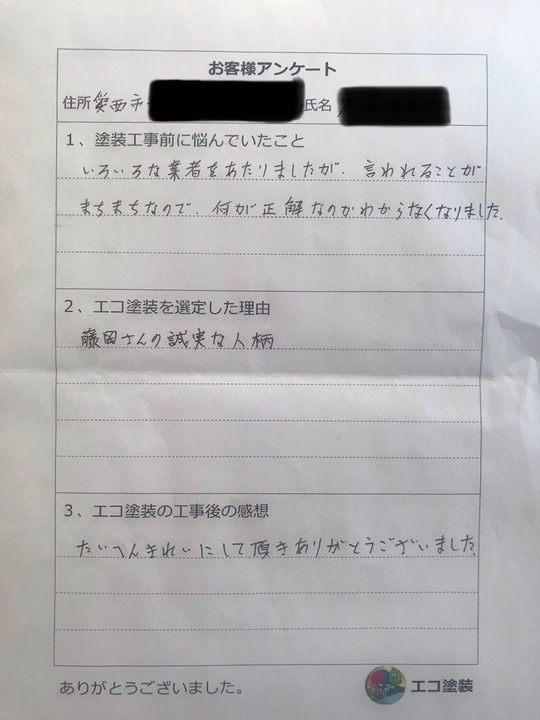 お客様アンケート
住所 愛西市 氏名
１、塗装工事前に悩んでいたこと
いろいろな業者をあたりましたが、言われることが
まちまちなので、何が正解なのかわからなくなりました。
２、エコ塗装を選定した理由
藤田さんの誠実な人柄
３、エコ塗装の工事後の感想
たいへんきれいにして頂きありがとうございました
ありがとうございました。
エコ塗装